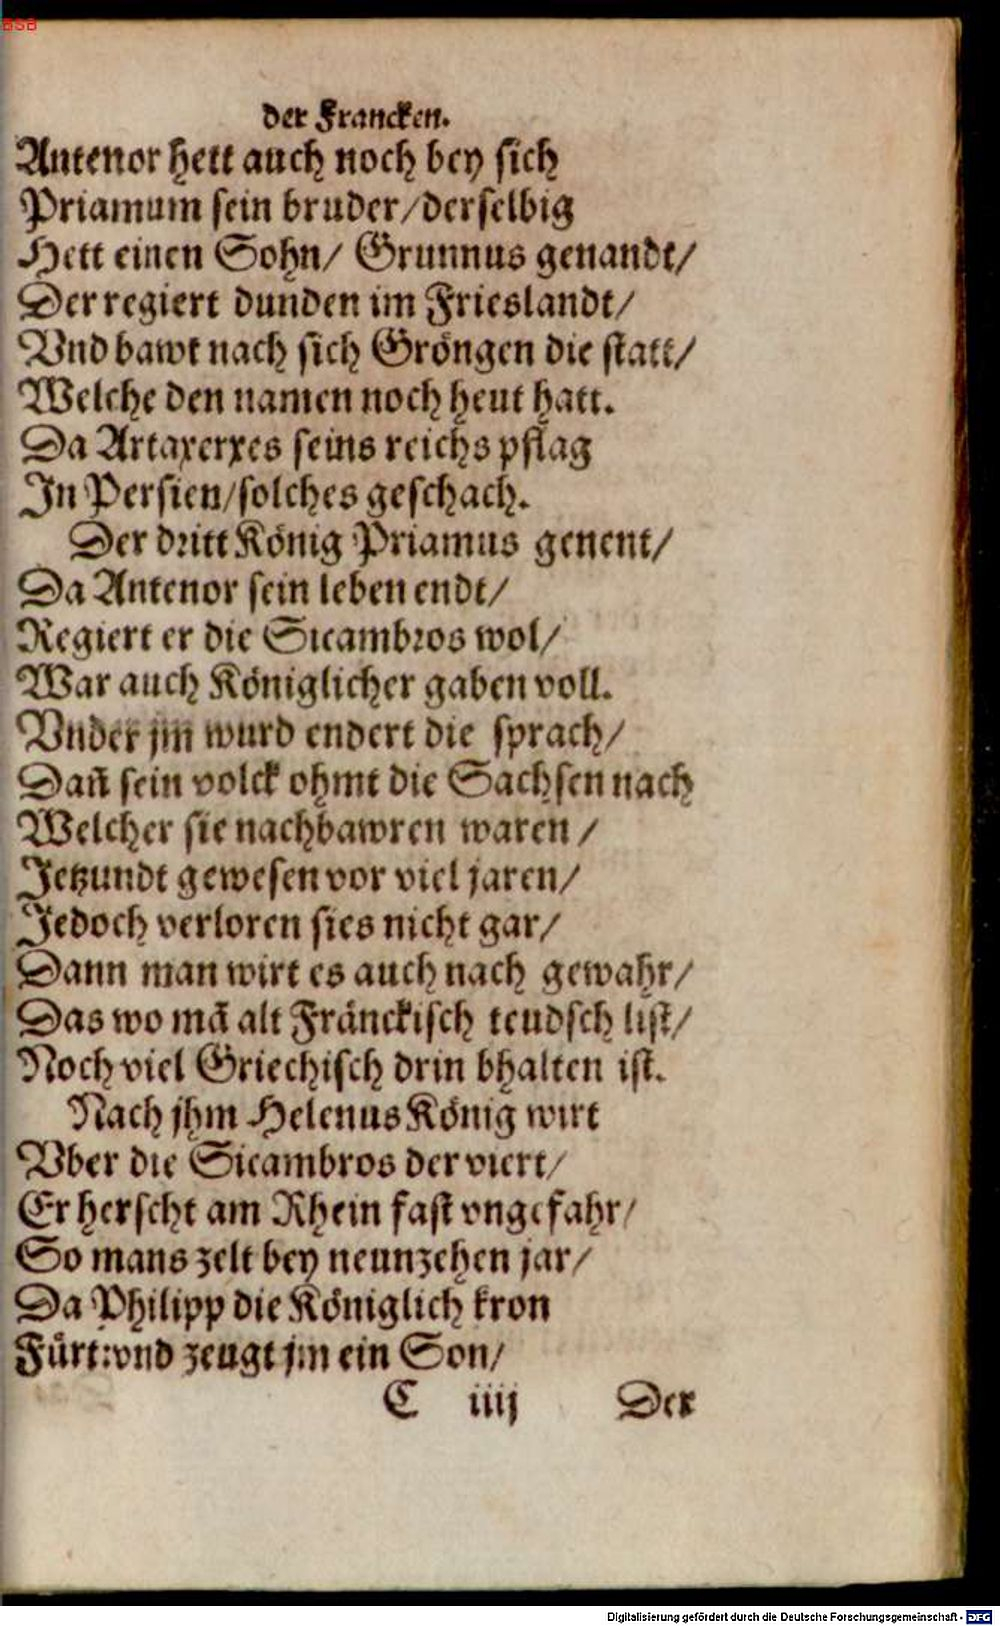 BSB
der Francken.
Antenor hett auch noch bey sich
Priamum sein bruder/derselbig
Hett einen Sohn/ Grunnus genandt/
Der regiert dunden im Frieslandt/
Vnd bawt nach sich Gröngen die statt/
Welche den namen noch heut hatt.
Da Artaxerxes seins reichs pflag
In Persien/solches geschach.
Der dritt König Priamus genent/
Da Antenor sein leben endt/
Regiert er die Sicambros wol/
War auch Königlicher gaben voll.
Vnder jm wurd endert die sprach/
Dañ sein volck ohmt die Sachsen nach
Welcher sie nachbawren waren /
Jetzundt gewesen vor viel jaren/
Jedoch verloren sies nicht gar/
Dann man wirt es auch nach gewahr/
Das wo mã alt Fränckisch teudsch list/
Noch viel Griechisch drin bhalten ist.
Nach jhm Helenus König wirt
Vber die Sicambros der viert/
Er herscht am Rhein fast vngefahr/
So mans zelt bey neunzehen jar/
Da Philipp die Königlich kron
Fürt:vnd zeugt jm ein Son/
C iiij Der
Digitalisierung gefördert durch die Deutsche Forschungsgemeinschaft - DFG